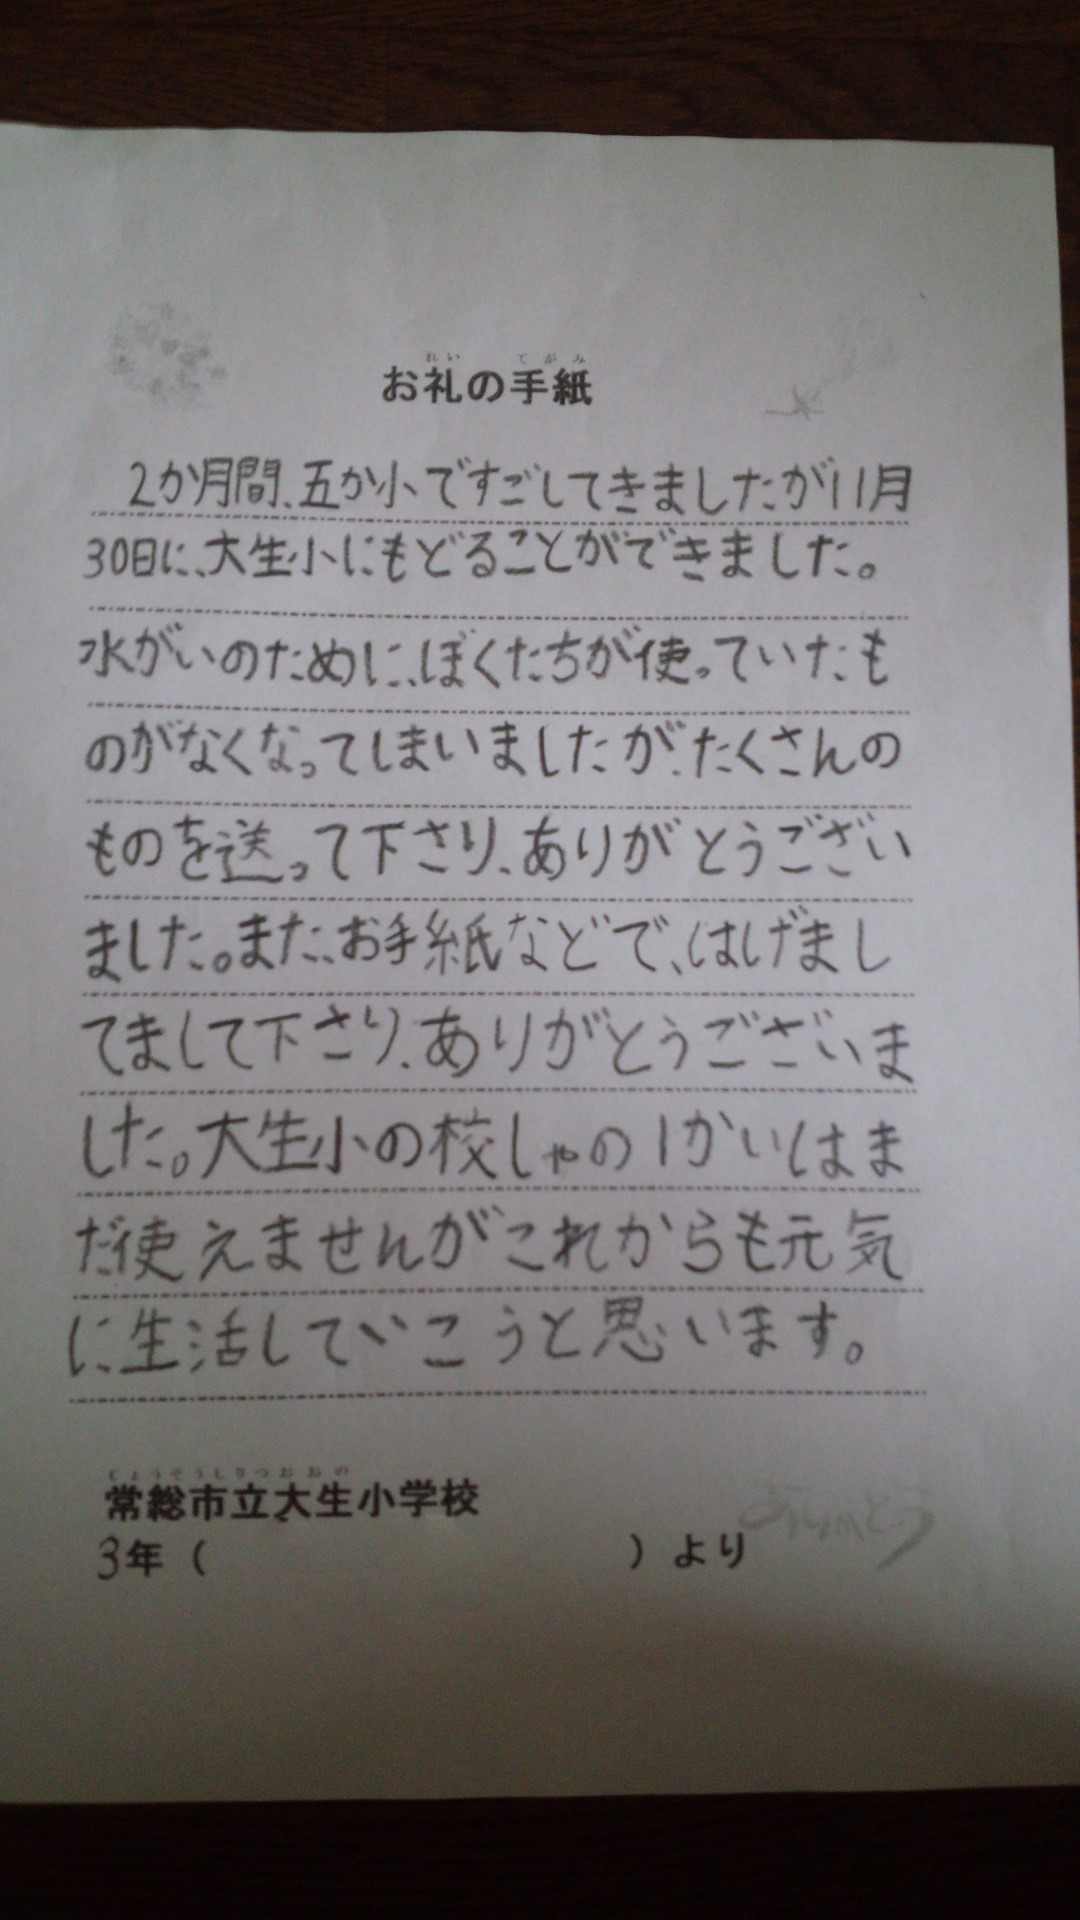 お礼の手紙
2か月間、五か小ですごしてきましたが11月
30日に、大生小にもどることができました。
水がいのために、ぼくたちが使っていたも
のがなくなってしまいましたが、たくさんの
ものを送って下さり、ありがとうござい
ました。また、お手紙などで、はげまし
てまして下さり、ありがとうございま
した。大生小の校しゃの1かいはま
だ使えませんがこれからも元気
に生活していこうと思います。
常総市立大生小学校
3年（　　　）より
ありがとう